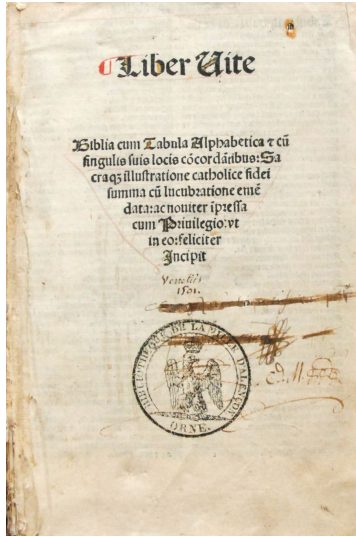 Liber Uite
Biblia cum Tabula Alphabetica ⁊ cũ
singulis suis locis cõcordãtibus: Sa
craqꝫ illustratione catholice fidei
summa cũ lucubratione emẽ
data: ac noviter ĩpressa
cum Privilegio: vt
in eo: feliciter
Incipit
Venetiis
1501.
BIBLIOTHEQUE DE LA VILLE D'ALENCON
ORNE.